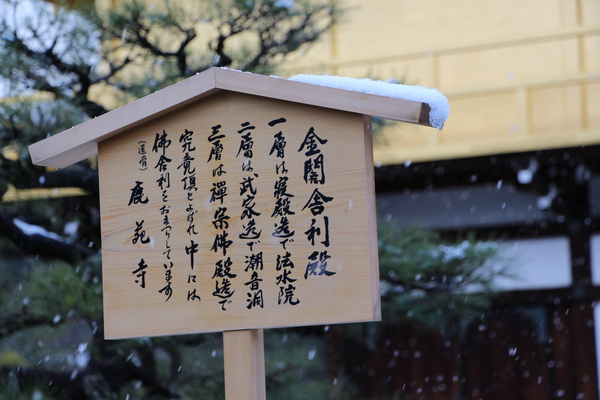 金閣舎利殿
一層は寝殿造で法水院
二層は、武家造で潮音洞
三層は禅宗佛殿造で
究竟頂とよばれ中には
佛舎利をおまつりしています
鹿苑寺